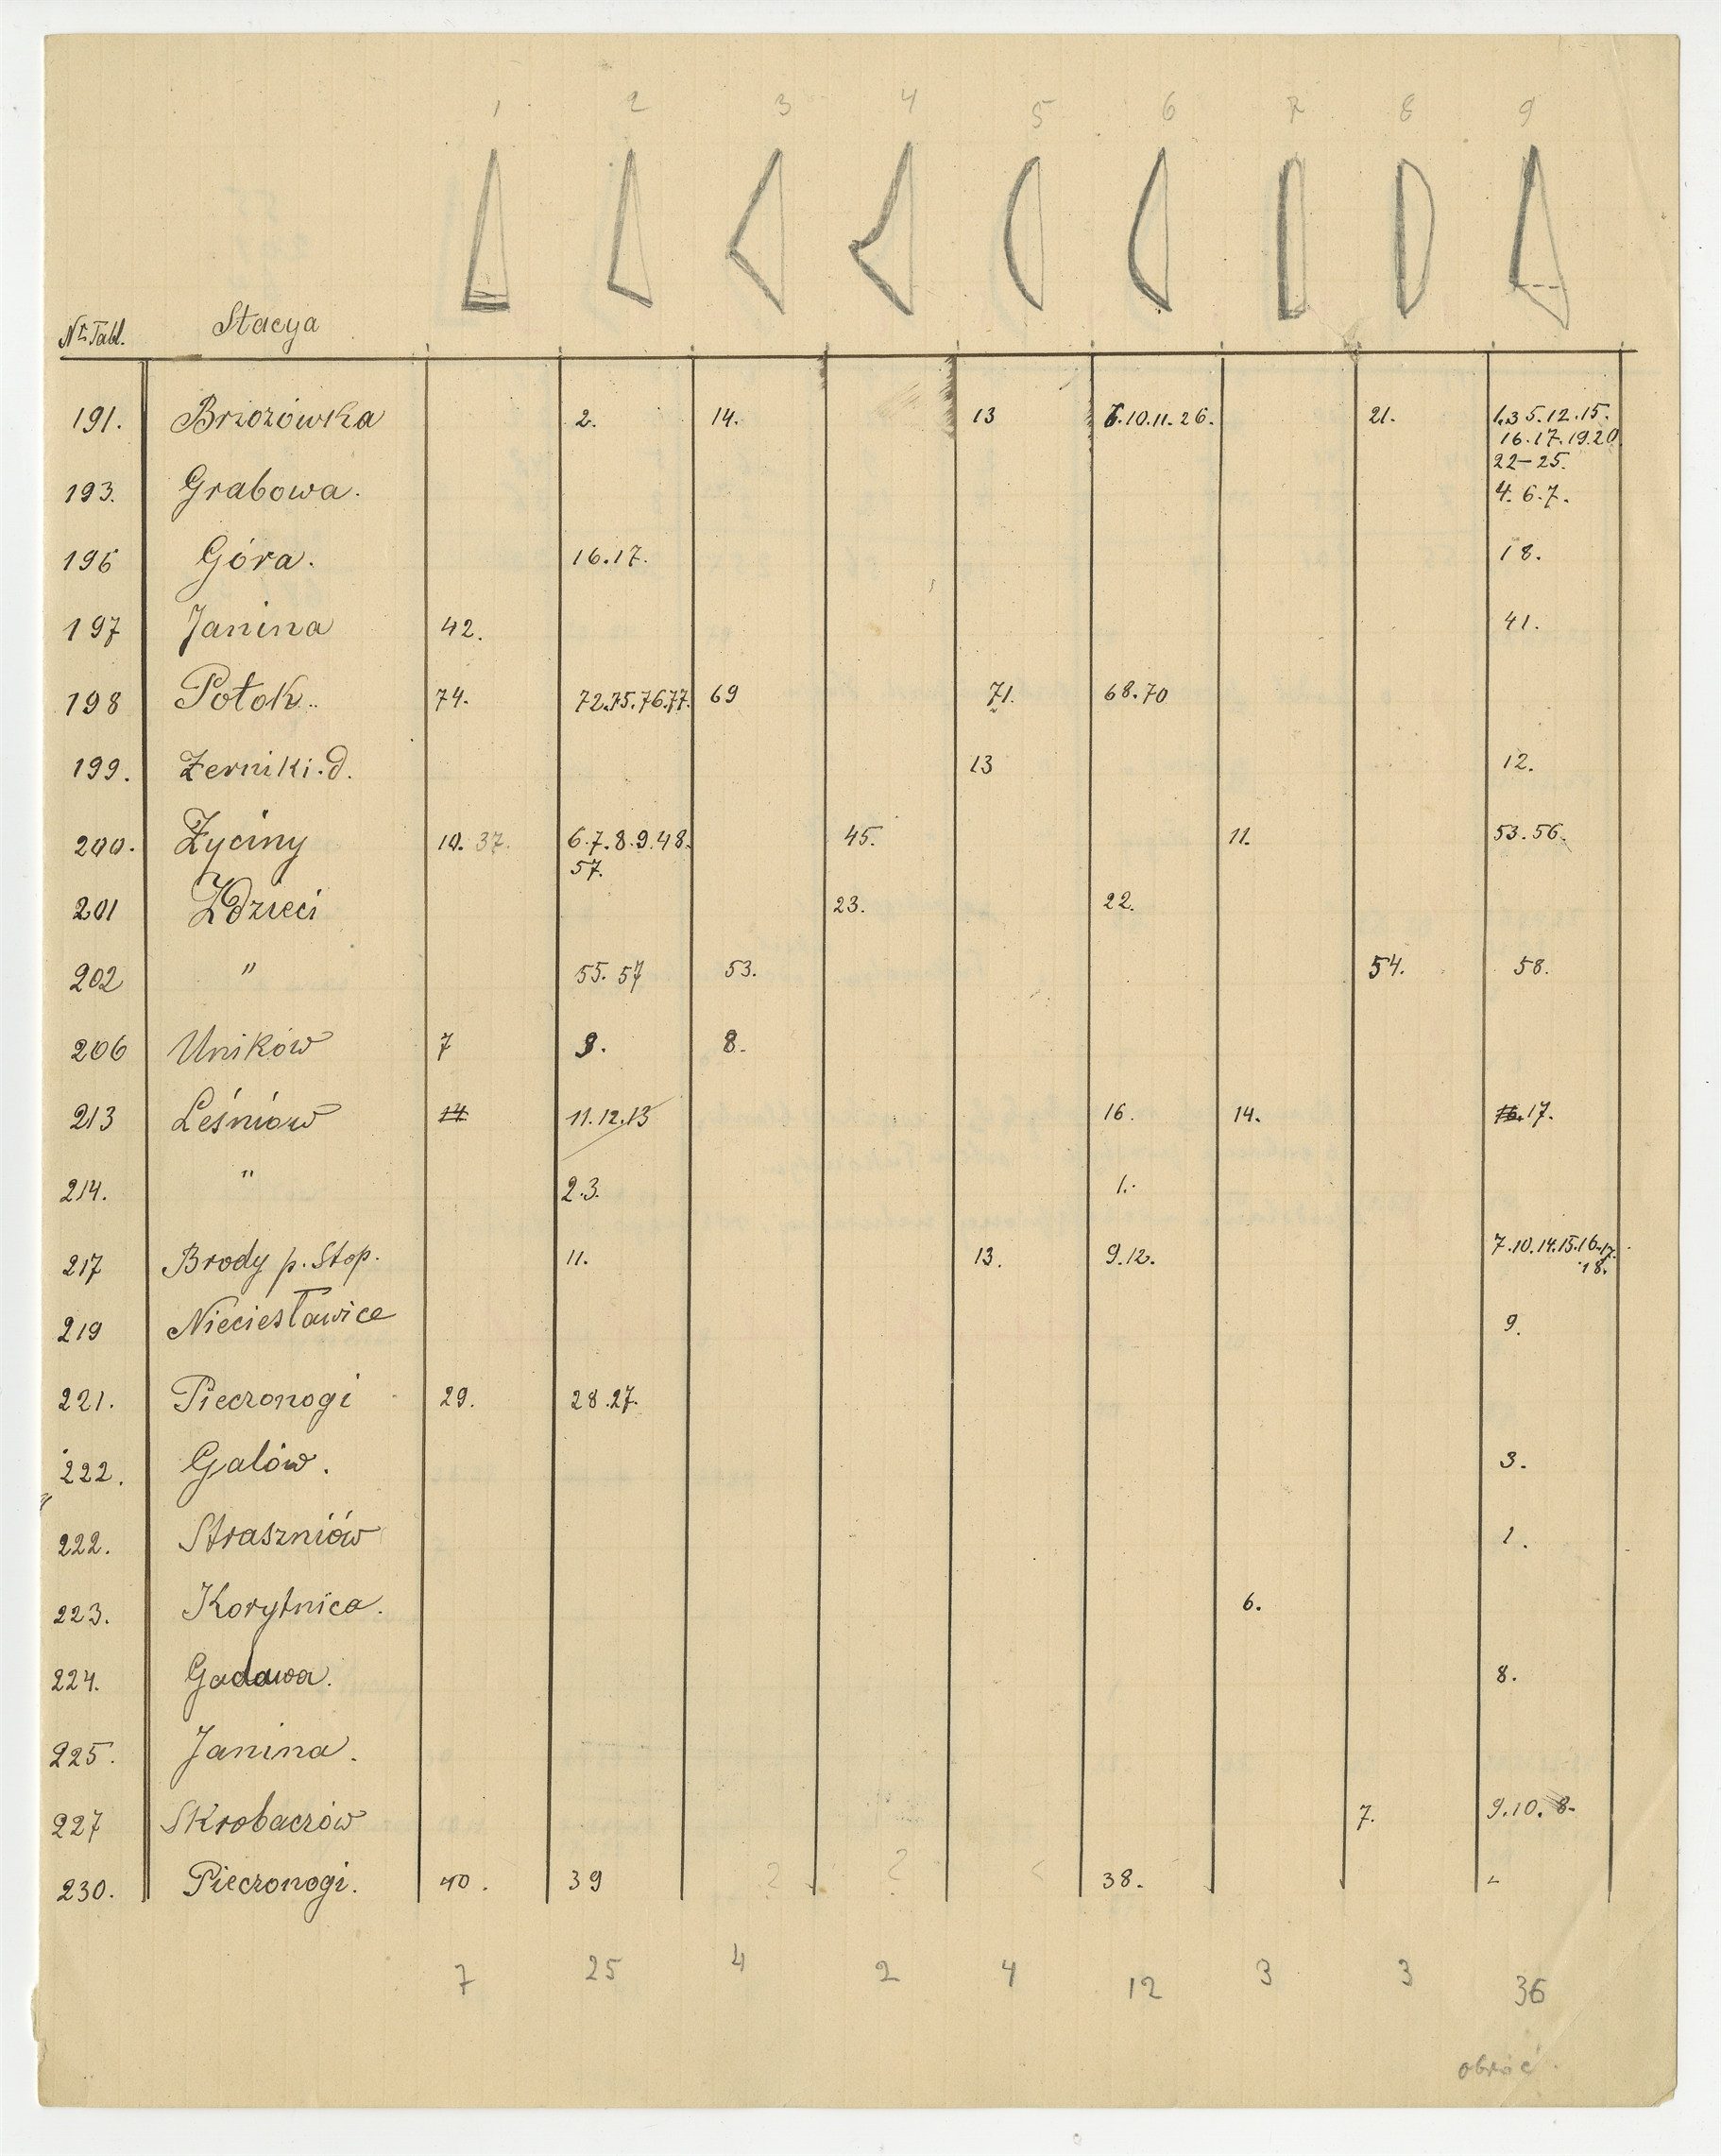 1 2 3 4 5 6 7 8 9
Nr Tabl. Stacya
191. Brzozówka 2. 14. 13 6.10.11.26. 21. 1.3 5.12.15.
16.17.19.20
22-25.
193. Grabowa. 4.6.7.
196 Góra. 16.17. 18.
197 Janina 42. 41.
198 Potok.. 74. 72.75.76.77. 69 71. 68.70
199. Żerniki.d. 13 12.
200. Życiny 10. 37. 6.7.8.9.48. 45. 11. 53.56.
57.
201 Zdzieci 23. 22.
202 " 55. 57 53. 54. 58.
206 Uników 7 9. 8.
213 Leśniów 14 11.12.13 16. 14. 16. 17.
214. " 2.3. 1.
217 Brody p. Stop. 11. 13. 9.12. 7.10.14.15.16.17.
18.
219 Nieciesławice 9.
221. Piecronogi 29. 28.27.
222. Galów. 3.
222. Straszniów 1.
223. Korytnica. 6.
224. Gadawa. 8.
225. Janina.
227 Skrobaczów 7. 9.10. 8.
230. Piecronogi. 40. 39 38.
7 25 4 2 4 12 3 3 36
obróć.